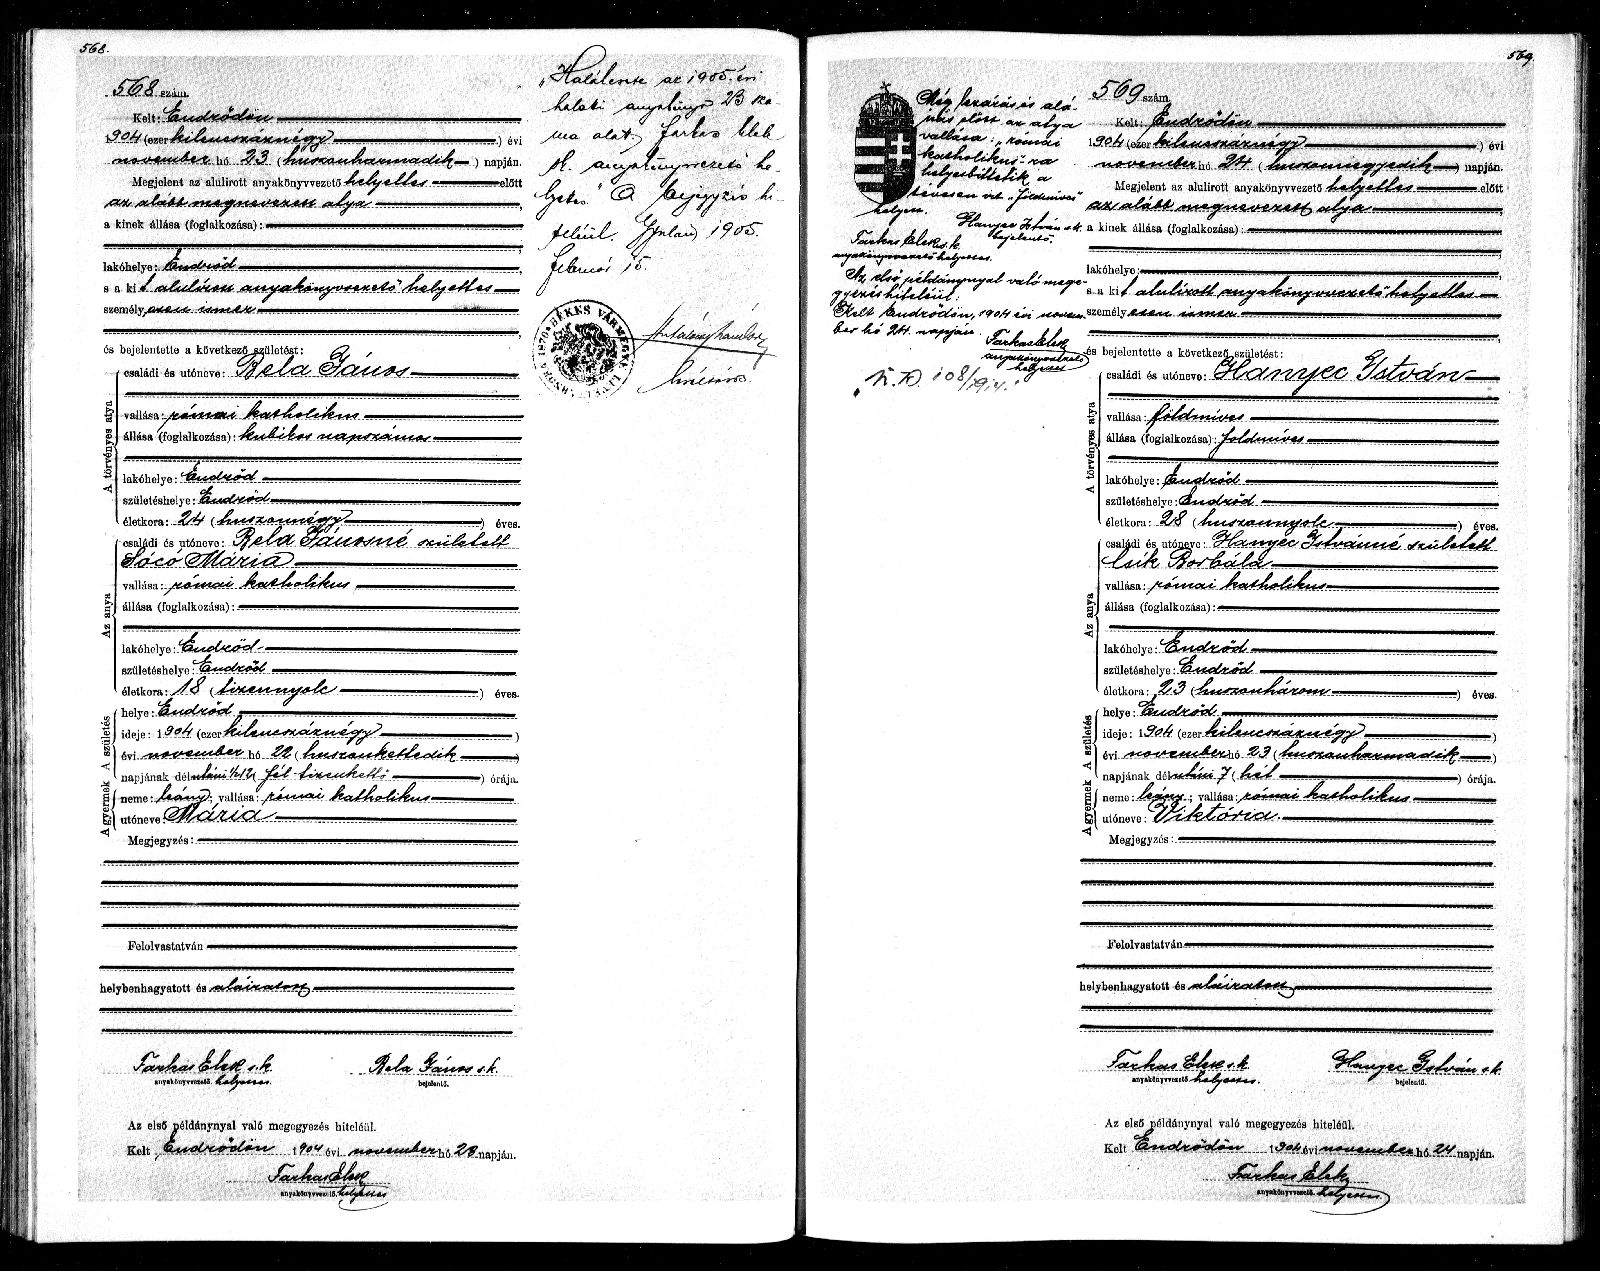 568.
568 szám.
Kelt: Endrődön
1904 (ezer kilencszáznégy) évi
november hó 23 (huszonharmadik) napján.
Megjelent az alulirott anyakönyvvezető helyettes előtt
az alább megnevezett atya
a kinek állása (foglalkozása):
lakóhelye: Endrőd
s a kit alulirott anyakönyvvezető helyettes
személyesen ismer
és bejelentette a következő születést:
A törvényes atya
családi és utóneve: Bela János
vallása: római katholikus
állása (foglalkozása): kubikos napszámos
lakóhelye: Endrőd
születéshelye: Endrőd
életkora: 24 (huszonnégy) éves.
Az anya
családi és utóneve: Bela Jánosné született
Sócó Mária
vallása: római katholikus
állása (foglalkozása):
lakóhelye: Endrőd
születéshelye: Endrőd
életkora: 18 (tizennyolc) éves.
A születés
helye: Endrőd
ideje: 1904 (ezer kilencszáznégy)
évi november hó 22 (huszonkettedik)
napjának délutáni ½12 (fél tizenkettő) órája.
A gyermek
neme: leány; vallása: római katholikus
utóneve: Mária
Megjegyzés:
Felolvastatván
helybenhagyatott és aláiratott
Farkas Elek s.k. Bela János s.k.
anyakönyvvezető helyettes. bejelentő.
Az első példánynyal való megegyezés hiteléül.
Kelt Endrődön 1904 évi november hó 23 napján.
Farkas Elek
anyakönyvvezető helyettes
"Halálesete az 1905. évi
halotti anyakönyv 23 szá-
ma alatt Farkas Elek
s.k. anyakönyvvezető he-
lyettes" A bejegyzés hi-
teléül. Gyulán 1905.
február 15.
BÉKÉS VÁRMEGYE
569.
569 szám.
Kelt: Endrődön
1904 (ezer kilencszáznégy) évi
november hó 24 (huszonnegyedik) napján.
Megjelent az alulirott anyakönyvvezető helyettes előtt
az alább megnevezett atya
a kinek állása (foglalkozása):
lakóhelye:
s a kit alulirott anyakönyvvezető helyettes
személyesen ismer
és bejelentette a következő születést:
A törvényes atya
családi és utóneve: Hanyec István
vallása: földmives
állása (foglalkozása): földmives
lakóhelye: Endrőd
születéshelye: Endrőd
életkora: 28 (huszonnyolc) éves.
Az anya
családi és utóneve: Hanyec Istvánné született
Csik Borbála
vallása: római katholikus
állása (foglalkozása):
lakóhelye: Endrőd
születéshelye: Endrőd
életkora: 23 (huszonhárom) éves.
A születés
helye: Endrőd
ideje: 1904 (ezer kilencszáznégy)
évi november hó 23 (huszonharmadik)
napjának délutáni 7 (hét) órája.
A gyermek
neme: leány; vallása: római katholikus
utóneve: Viktória.
Megjegyzés:
Felolvastatván
helybenhagyatott és aláiratott
Farkas Elek s.k. Hanyec István s.k.
anyakönyvvezető helyettes. bejelentő.
Az első példánynyal való megegyezés hiteléül.
Kelt Endrődön 1904 évi november hó 24 napján.
Farkas Elek
anyakönyvvezető helyettes.
Még lezárás és alá-
irás előtt az atya
vallása: "római
katholikus"-ra
helyesbittetik a
tévesen irt "földmives"
helyett.
Hanyec István s.k.
bejelentő.
Farkas Elek s.k.
anyakönyvvezető helyettes.
Az első példánynyal való mege-
gyezés hiteléül:
Kelt Endrődön, 1904 évi novem-
ber hó 24. napján.
Farkas Elek
anyakönyvvezető
helyettes
108/1914.